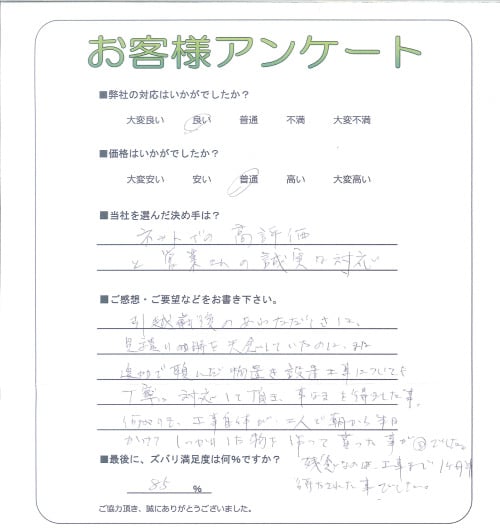 お客様アンケート
■弊社の対応はいかがでしたか?
大変良い 良い 普通 不満 大変不満
■価格はいかがでしたか?
大変安い 安い 普通 高い 大変高い
■当社を選んだ決め手は?
ネットでの高評価
と営業さんの誠実な対応
■ご感想・ご要望などをお書き下さい。
引越前後のあわただしさに、
見積り
で頼んだ物置き設置工事についても
丁寧に対応して頂き、事なきを得ました事。
何よりも、工事自体が、二人で朝から半日
かけて しっかりした物を作って貰った事が
■最後に、ズバリ満足度は何%ですか?
残念なのは、工事まで1ヶ月半
85 %
待たされた事でした。
ご協力頂き、誠にありがとうございました。